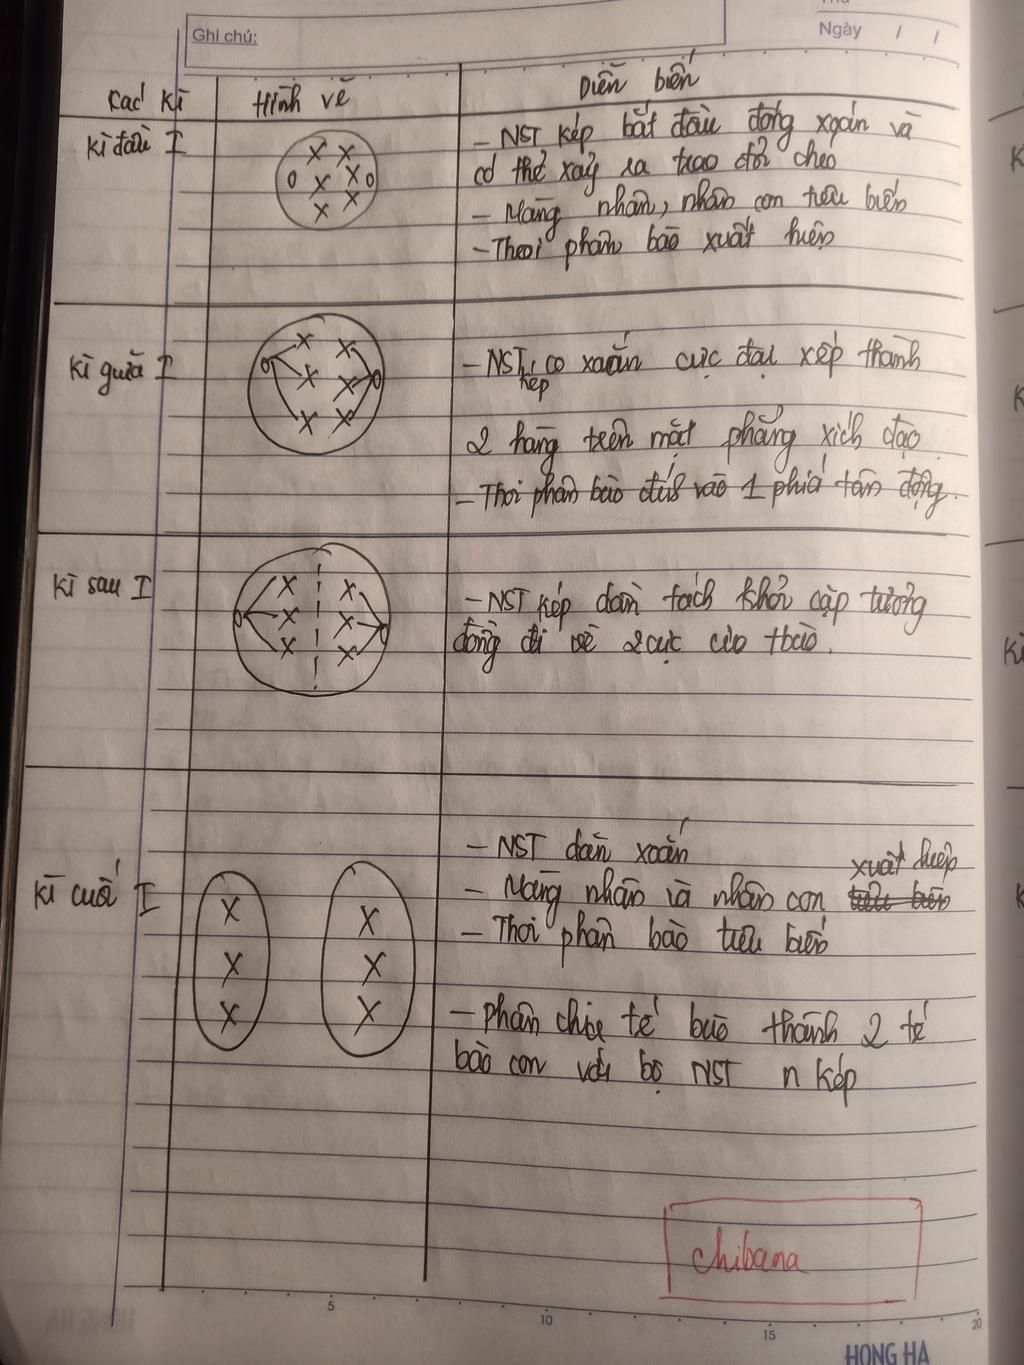 Ghi chú:
Ngày / /
Các kì
Hình vẽ
Diễn biến
Kì đầu I
- NST kép bắt đầu đóng xoắn và
có thể xảy ra trao đổi chéo
- Màng nhân, nhân con tiêu biến
- Thoi phân bào xuất hiện
Kì giữa I
- NST kép co xoắn cực đại xếp thành
2 hàng trên mặt phẳng xích đạo.
- Thoi phân bào đính vào 1 phía tâm động.
Kì sau I
- NST kép dần tách khỏi cặp tương
đồng đi về 2 cực của tbào.
Kì cuối I
- NST dãn xoắn
- Màng nhân và nhân con tiêu biến xuất hiện
- Thoi phân bào tiêu biến
- phân chia tế bào thành 2 tế
bào con với bộ NST n kép
chibana
5 10 15 20
HONG HA